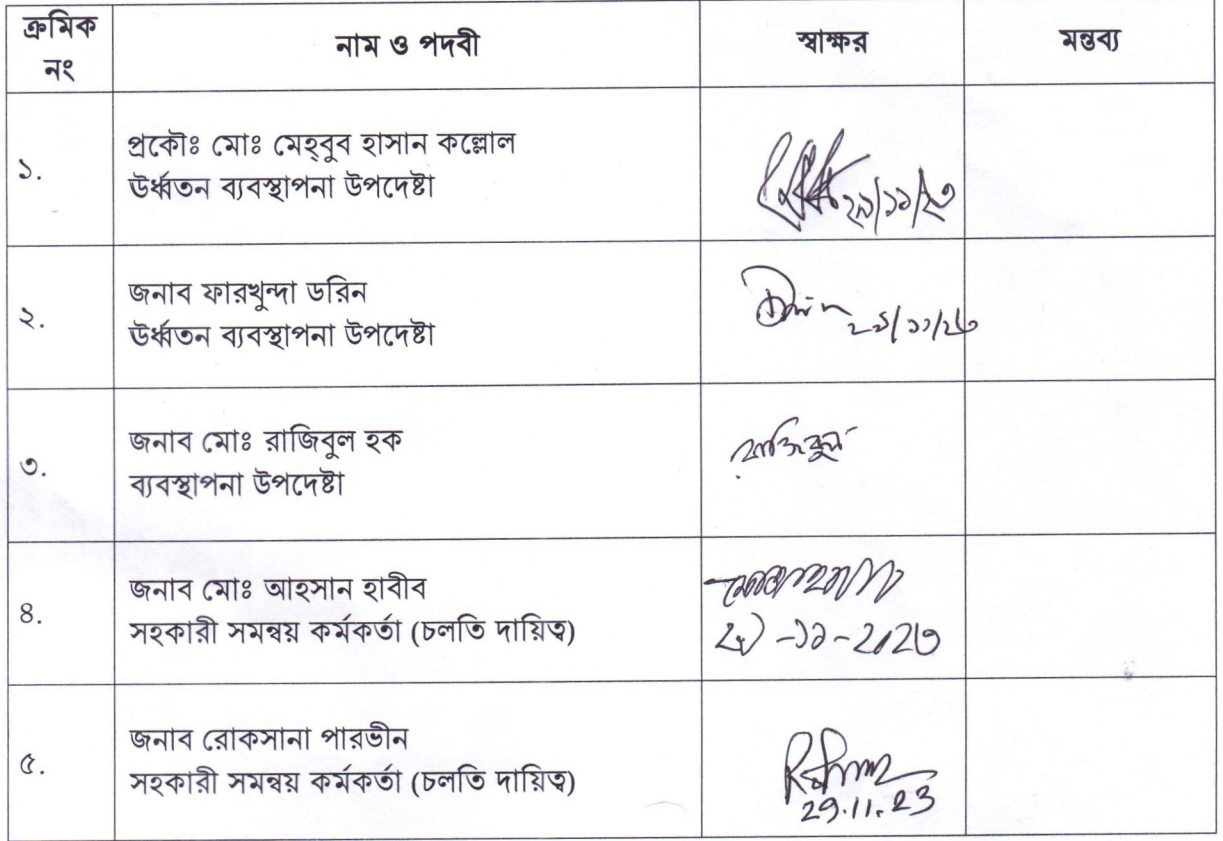 ক্রমিক নং নাম ও পদবী স্বাক্ষর মন্তব্য
১. প্রকৌঃ মোঃ মেহ্‌বুব হাসান কল্লোল
ঊর্ধ্বতন ব্যবস্থাপনা উপদেষ্টা
২৯/১১/২৩
২. জনাব ফারখুন্দা ডরিন
ঊর্ধ্বতন ব্যবস্থাপনা উপদেষ্টা
২৯/১১/২৩
৩. জনাব মোঃ রাজিবুল হক
ব্যবস্থাপনা উপদেষ্টা
রাজিবুল
৪. জনাব মোঃ আহসান হাবীব
সহকারী সমন্বয় কর্মকর্তা (চলতি দায়িত্ব)
২৯-১১-২০২৩
৫. জনাব রোকসানা পারভীন
সহকারী সমন্বয় কর্মকর্তা (চলতি দায়িত্ব)
29.11.23